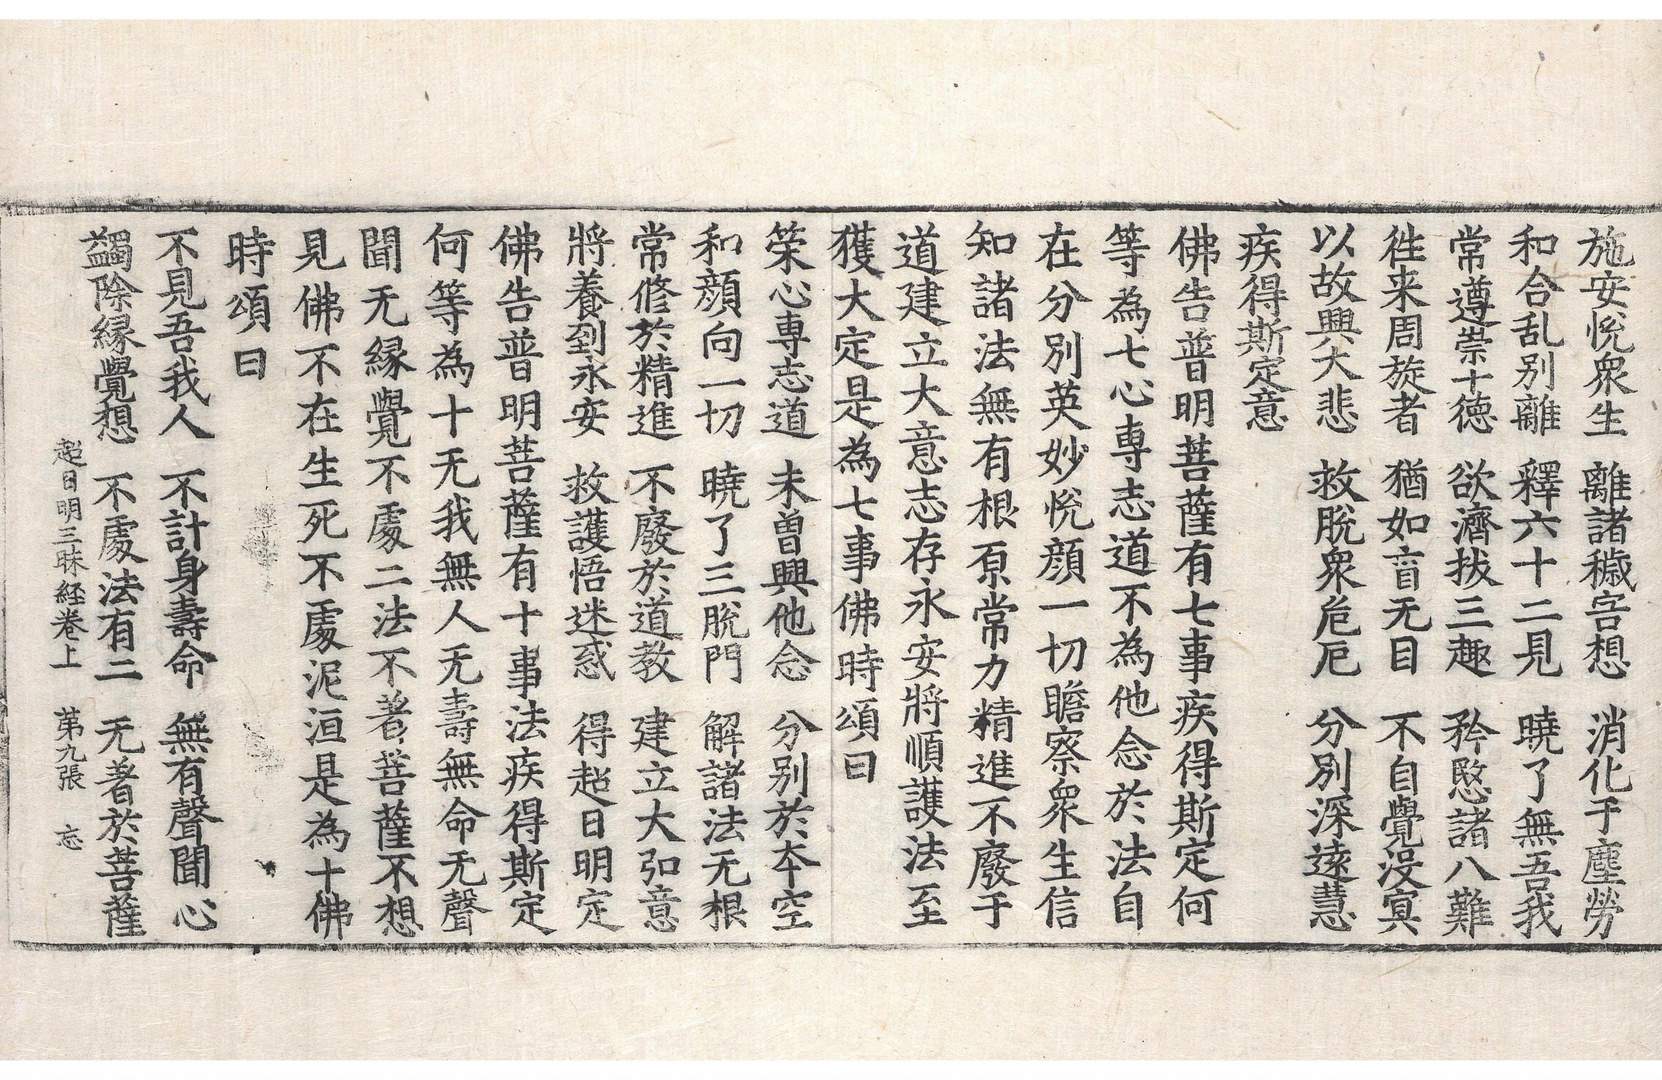 施安悅衆生　離諸穢害想　消化于塵勞
和合乱别離　釋六十二見　曉了無吾我
常遵崇十德　欲濟拔三趣　矜愍諸八難
徃来周旋者　猶如盲无目　不自覺没冥
以故興大悲　救脫衆危厄　分別深遠慧
疾得斯定意
佛告普明菩薩有七事疾得斯定何
等為七心專志道不為他念於法自
在分別英妙悅顔一切瞻察衆生信
知諸法無有根原常力精進不廢于
道建立大意志存永安將順護法至
獲大定是為七事佛時頌曰
榮心專志道　未曽興他念　分別於夲空
和顔向一切　曉了三脫門　解諸法无根
常修於精進　不廢於道教　建立大弘意
將養到永安　救護悟迷惑　得超日明定
佛告普明菩薩有十事法疾得斯定
何等為十无我無人无壽無命无聲
聞无緣覺不處二法不著菩薩不想
見佛不在生死不處泥洹是為十佛
時頌曰
不見吾我人　不計身壽命　無有聲聞心
蠲除緣覺想　不處法有二　无著於菩薩
超日明三昧経卷上　第九張　忘